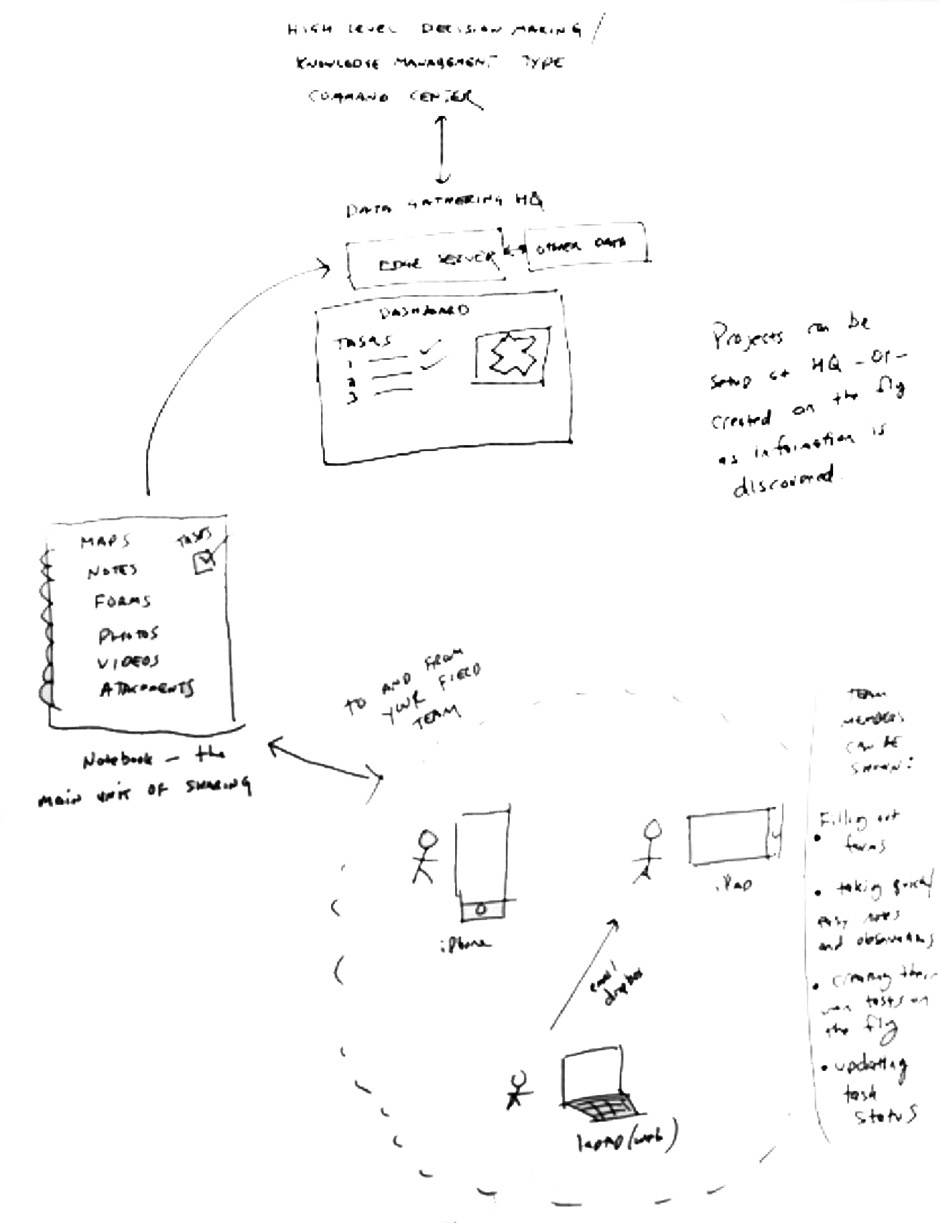 HIGH LEVEL DECISION MAKING /
KNOWLEDGE MANAGEMENT TYPE
COMMAND CENTER
DATA GATHERING HQ
EDGE SERVER
OTHER DATA
DASHBOARD
TASKS
1
2
3
Projects can be
setup at HQ -or-
created on the fly
as information is
discovered.
MAPS
TASKS
NOTES
FORMS
PHOTOS
VIDEOS
ATACHMENTS
Notebook - the
MAIN UNIT OF SHARING
TO AND FROM
YOUR FIELD
TEAM
iPhone
iPAD
email
dropbox
laptop (web)
TEAM
MEMBERS
CAN BE
SHOWN:
Filling out
• forms
• taking quick/
easy notes
and observations
• creating their
own tasks on
the fly
• updating
task
status